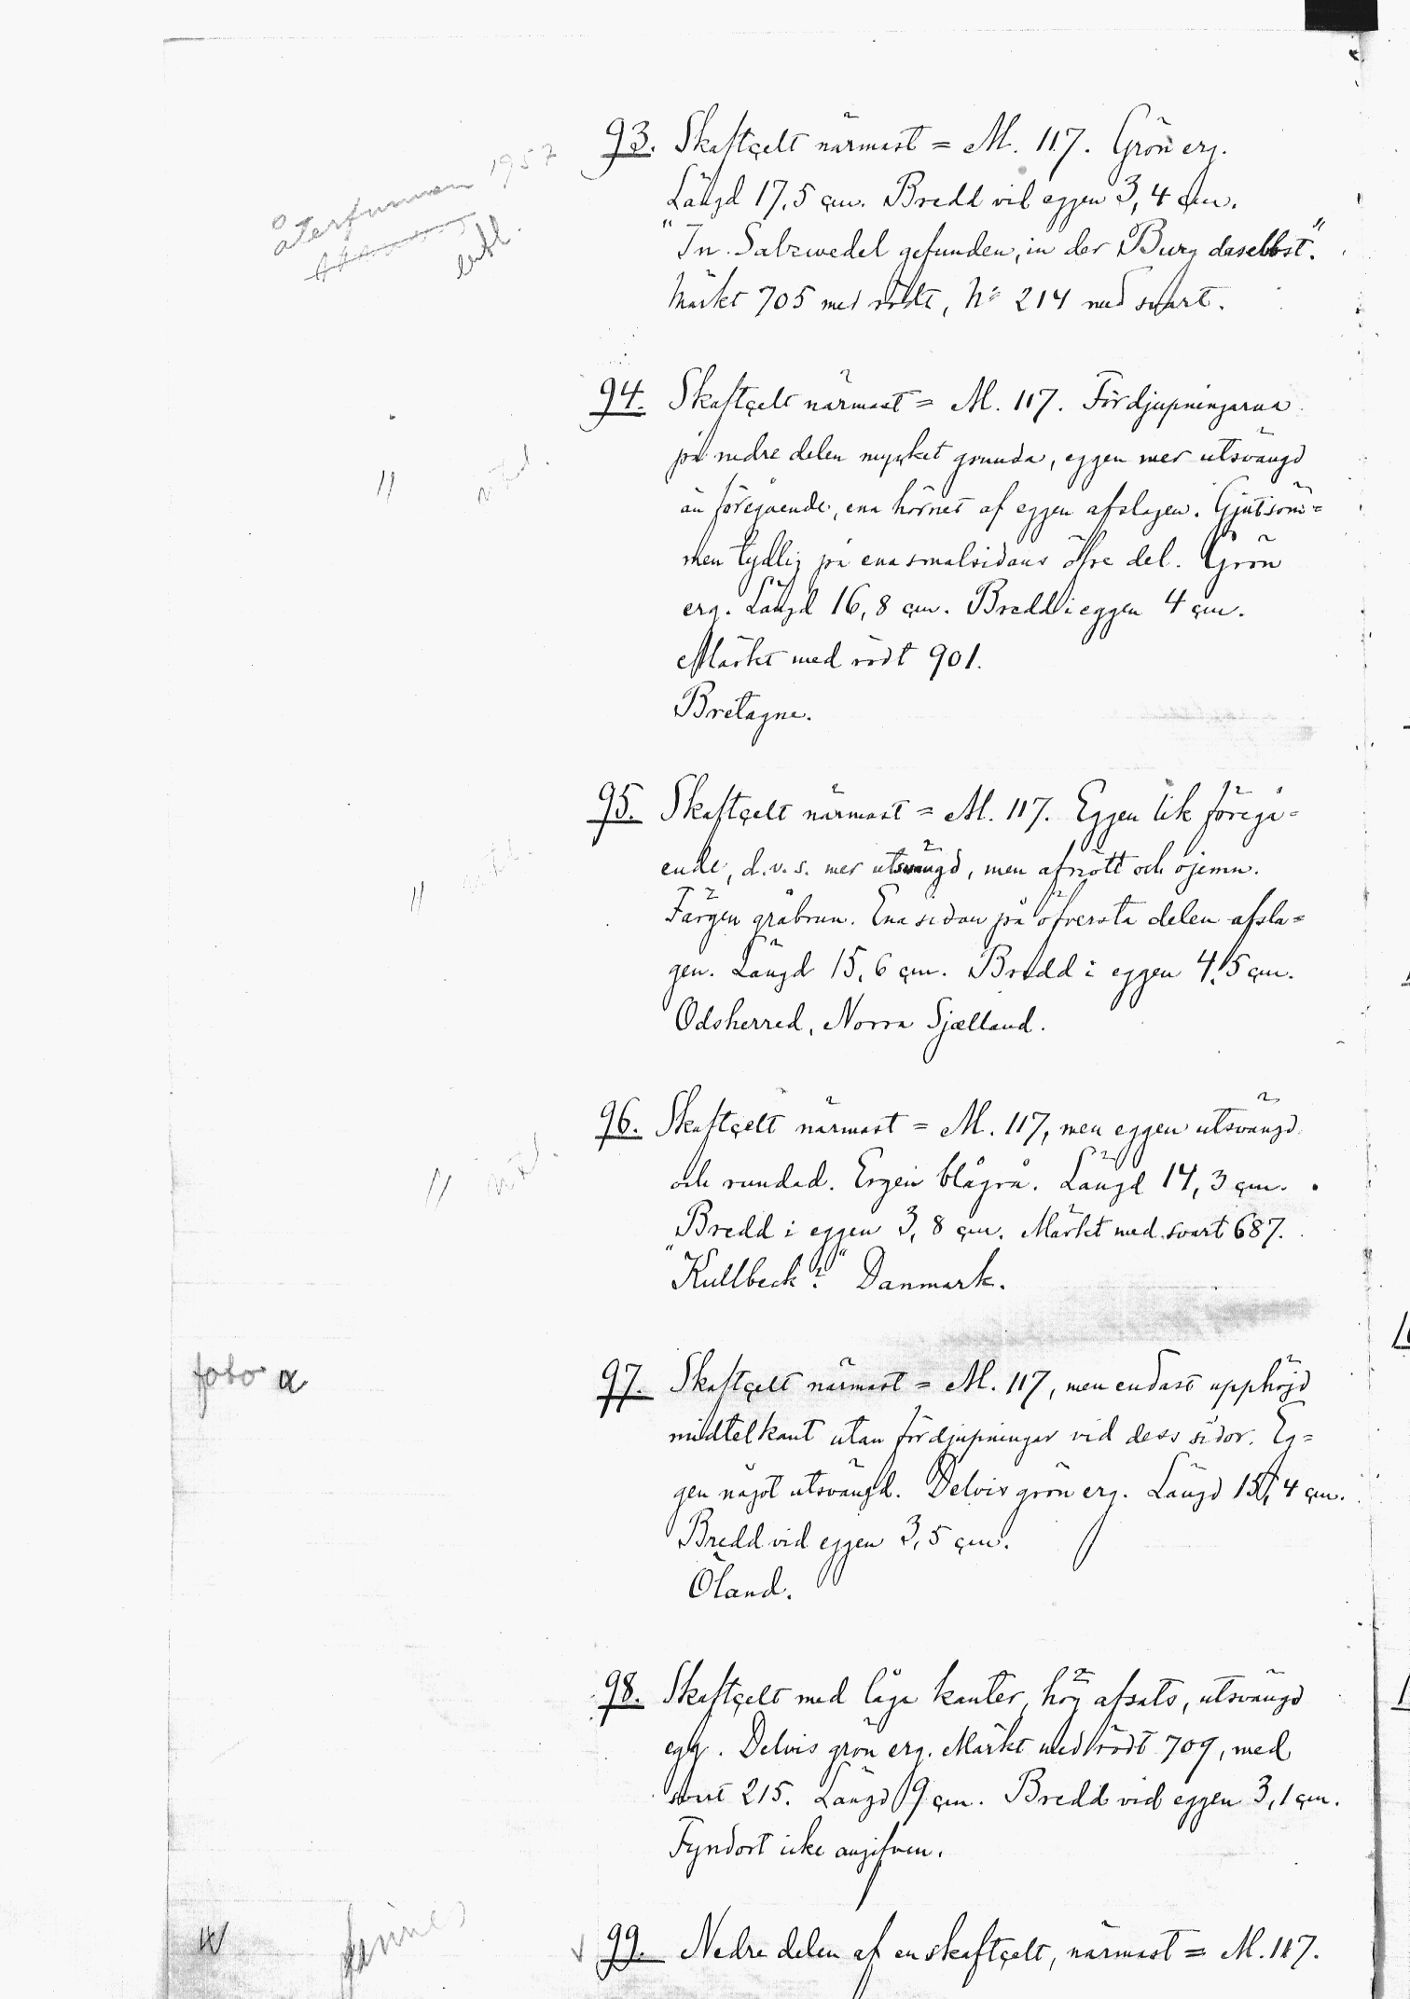 återfunnen 1957
utst.
93. Skaftçelt närmast = M. 117. Grön erg.
Längd 17,5 çm. Bredd vid eggen 3,4 çm.
"In Salzwedel gefunden, in der Burg daselbst."
Märkt 705 med rödt, No 214 med svart.
94. Skaftçelt närmast = M. 117. Fördjupningarna
på nedre delen mycket grunda, eggen mer utsvängd
än föregående, ena hörnet af eggen afslagen. Gjutsöm=
men tydlig på ena smalsidans öfre del. Grön
erg. Längd 16,8 çm. Bredd i eggen 4 çm.
Märkt med rödt 901.
Bretagne.
"
95. Skaftçelt närmast = M. 117. Eggen lik föregå=
ende, d.v.s. mer utsvängd, men afnött och ojemn.
Färgen gråbrun. Ena sidan på öfversta delen afsla=
gen. Längd 15,6 çm. Bredd i eggen 4,5 çm.
Odsherred, Norra Sjælland.
"
96. Skaftçelt närmast = M. 117, men eggen utsvängd
och rundad. Ergen blågrå. Längd 14,3 çm.
Bredd i eggen 3,8 çm. Märkt med svart 687.
"Kullbeck?" Danmark.
"
foto α
97. Skaftçelt närmast = M. 117, men endast upphöjd
midtelkant utan fördjupningar vid dess sidor. Eg=
gen något utsvängd. Delvis grön erg. Längd 15,4 çm.
Bredd vid eggen 3,5 çm.
Öland.
98. Skaftçelt med låga kanter, hög afsats, utsvängd
egg. Delvis grön erg. Märkt med rödt 709, med
svart 215. Längd 9 çm. Bredd vid eggen 3,1 çm.
Fyndort icke angifven.
finnes
99. Nedre delen af en skaftçelt, närmast = M. 117.